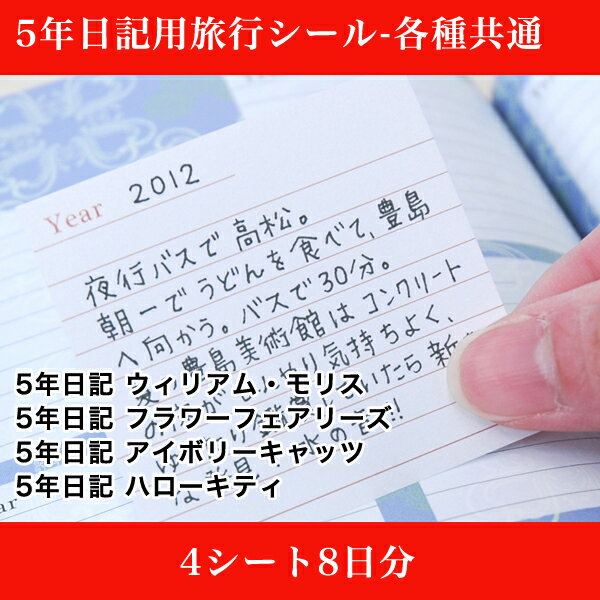 5年日記用旅行シール-各種共通
Year 2012
夜行バスで高松。
朝一でうどんを食べて、豊島
へ向かう。バスで30分。
豊島美術館はコンクリート
気持ちよく、
いたら新
5年日記 ウィリアム・モリス
5年日記 フラワーフェアリーズ
5年日記 アイボリーキャッツ
5年日記 ハローキティ
4シート8日分